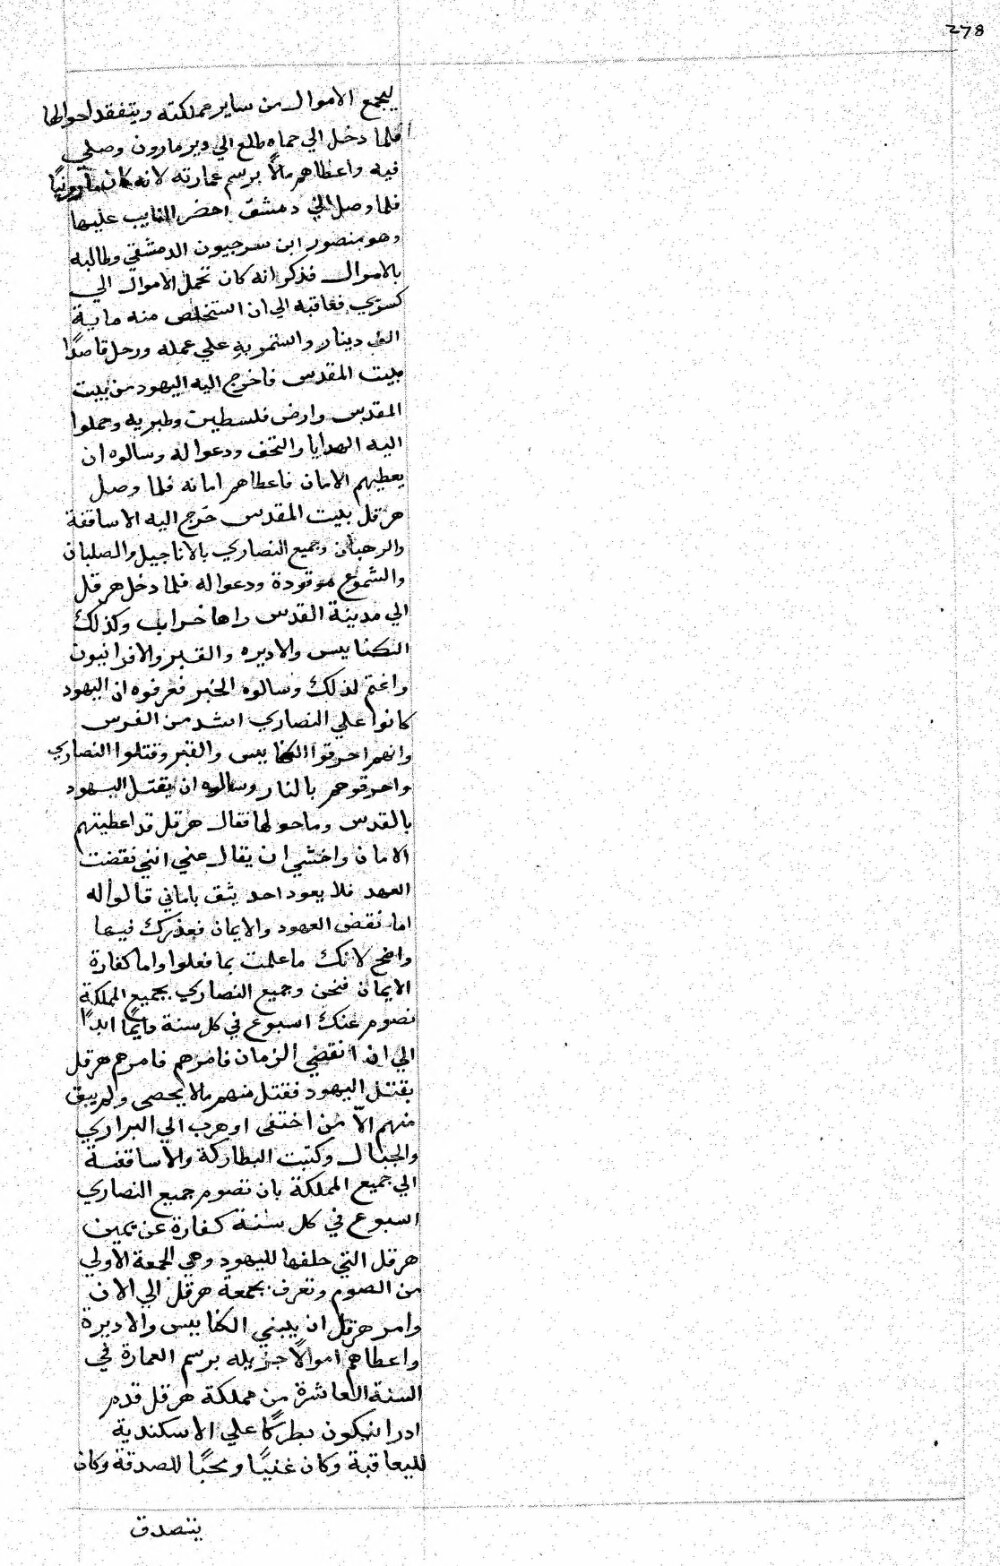 278
ليجمع الاموال من ساير مملكته ويتفقد احوالها
فلما دخل الي حماه طلع الي دير مارون وصلي
فيه واعطاهم مالاً برسم عمارته لانه كان مارونيًا
فلما وصل الي دمشق احضر النايب عليها
وهو منصور ابن سرجيون الدمشقي وطالبه
بالاموال فذكر انه كان تحمل الاموال الي
كسري فعاقبه الي ان استخلص منه ماية
الف دينار واستمر به علي عمله ورحل قاصدًا
بيت المقدس فاخرج اليه اليهود من بيت
المقدس وارض فلسطين وطبريه وحملوا
اليه الهدايا والتحف ودعوا له وسالوه ان
يعطيهم الامان فاعطاهم امانه فلما وصل
هرقل بيت المقدس خرج اليه الاساقفة
والرهبان وجميع النصاري بالاناجيل والصلبان
والشموع موقودة ودعوا له فلما دخل هرقل
الي مدينة القدس راها خراب وكذلك
الكنايس والاديره والقبر والاقرانيون
واغتم لذلك وسالوه الخبر فعرفوه ان اليهود
كانوا علي النصاري اشد من الفرس
وانهم احرقوا الكنايس والقبر وقتلوا النصاري
واحرقوهم بالنار وسالوه ان يقتل اليهود
بالقدس وما حولها فقال هرقل قد اعطيتهم
الامان واخشي ان يقال عني انني نقضت
العهد فلا يعود احد يثق باماني قالوا له
اما نقض العهود والايمان فعذرك فيها
واضح لانك ما علمت بما فعلوا واما كفارة
الايمان فنحن وجميع النصاري بجميع المملكة
نصوم عنك اسبوع في كل سنة دايمًا ابدًا
الي ان انقضي الزمان فامرهم فامرهم هرقل
بقتل اليهود فقتل منهم ما لا يحصي ولم يبق
منهم الاّ من اختفي او هرب الي البراري
والجبال وكتبت البطاركة والاساقفة
الي جميع المملكة بان تصوم جميع النصاري
اسبوع في كل سنة كفارة عن يمين
هرقل التي حلفها لليهود وهي الجمعة الاولي
من الصوم وتعرف بجمعة هرقل الي الان
وامر هرقل ان يبني الكنايس والاديرة
واعطاهم اموالاً جزيله برسم العمارة في
السنة العاشرة من مملكة هرقل قدم
ادرانيكون بطركًا علي الاسكندية
لليعاقبة وكان غنيًا ومحبًا للصدقة وكان
يتصدق